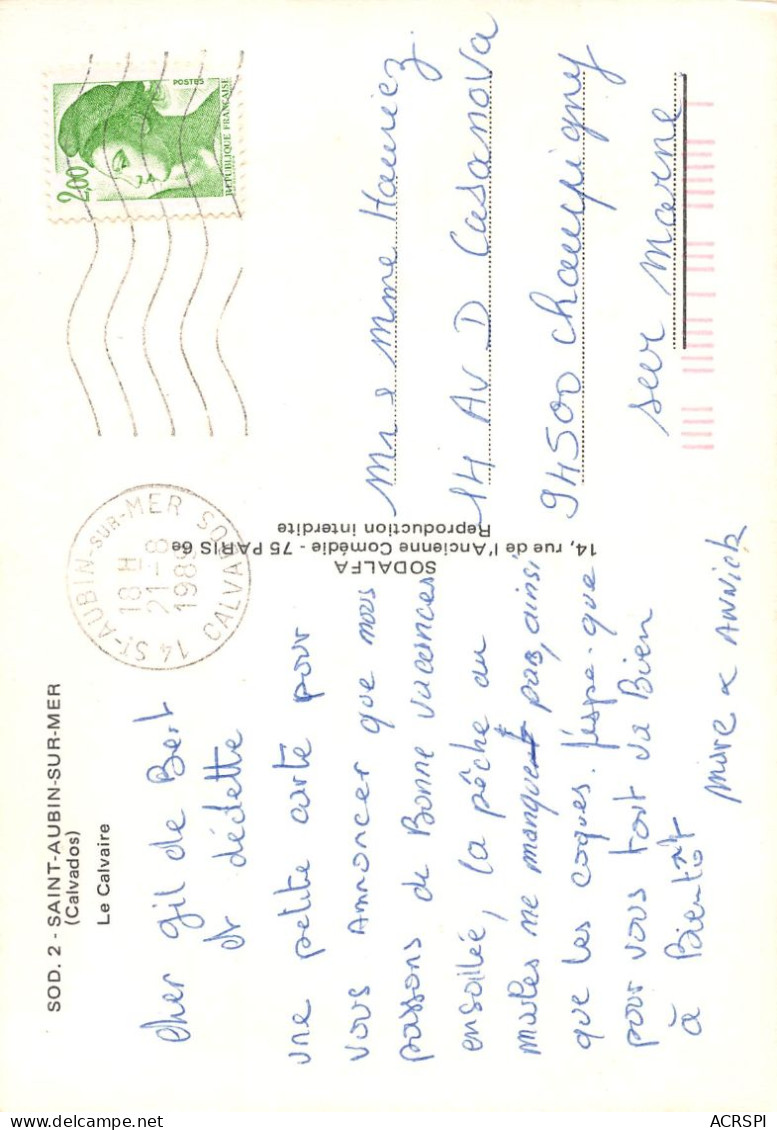 SOD. 2 - SAINT-AUBIN-SUR-MER
(Calvados)
Le Calvaire
Cher Gil de Bert
et dédette
une petite carte pour
vous Annoncer que nous
passons de Bonne vacances
ensoilée, la pêche au
moules ne manque pas, ainsi
que les coques. j'éspe. que
pour vous tout va Bien
à Bientôt
Marc & ANNICK
SODALFA
14, rue de l'Ancienne Comédie - 75 PARIS 6e
Reproduction interdite
14 ST-AUBIN-SUR-MER
18 H
21-8
CALVADOS
POSTES
2,00
RÉPUBLIQUE FRANÇAISE
14 AV D Casanova
94500 Champigny
sur marne
ACRSPI